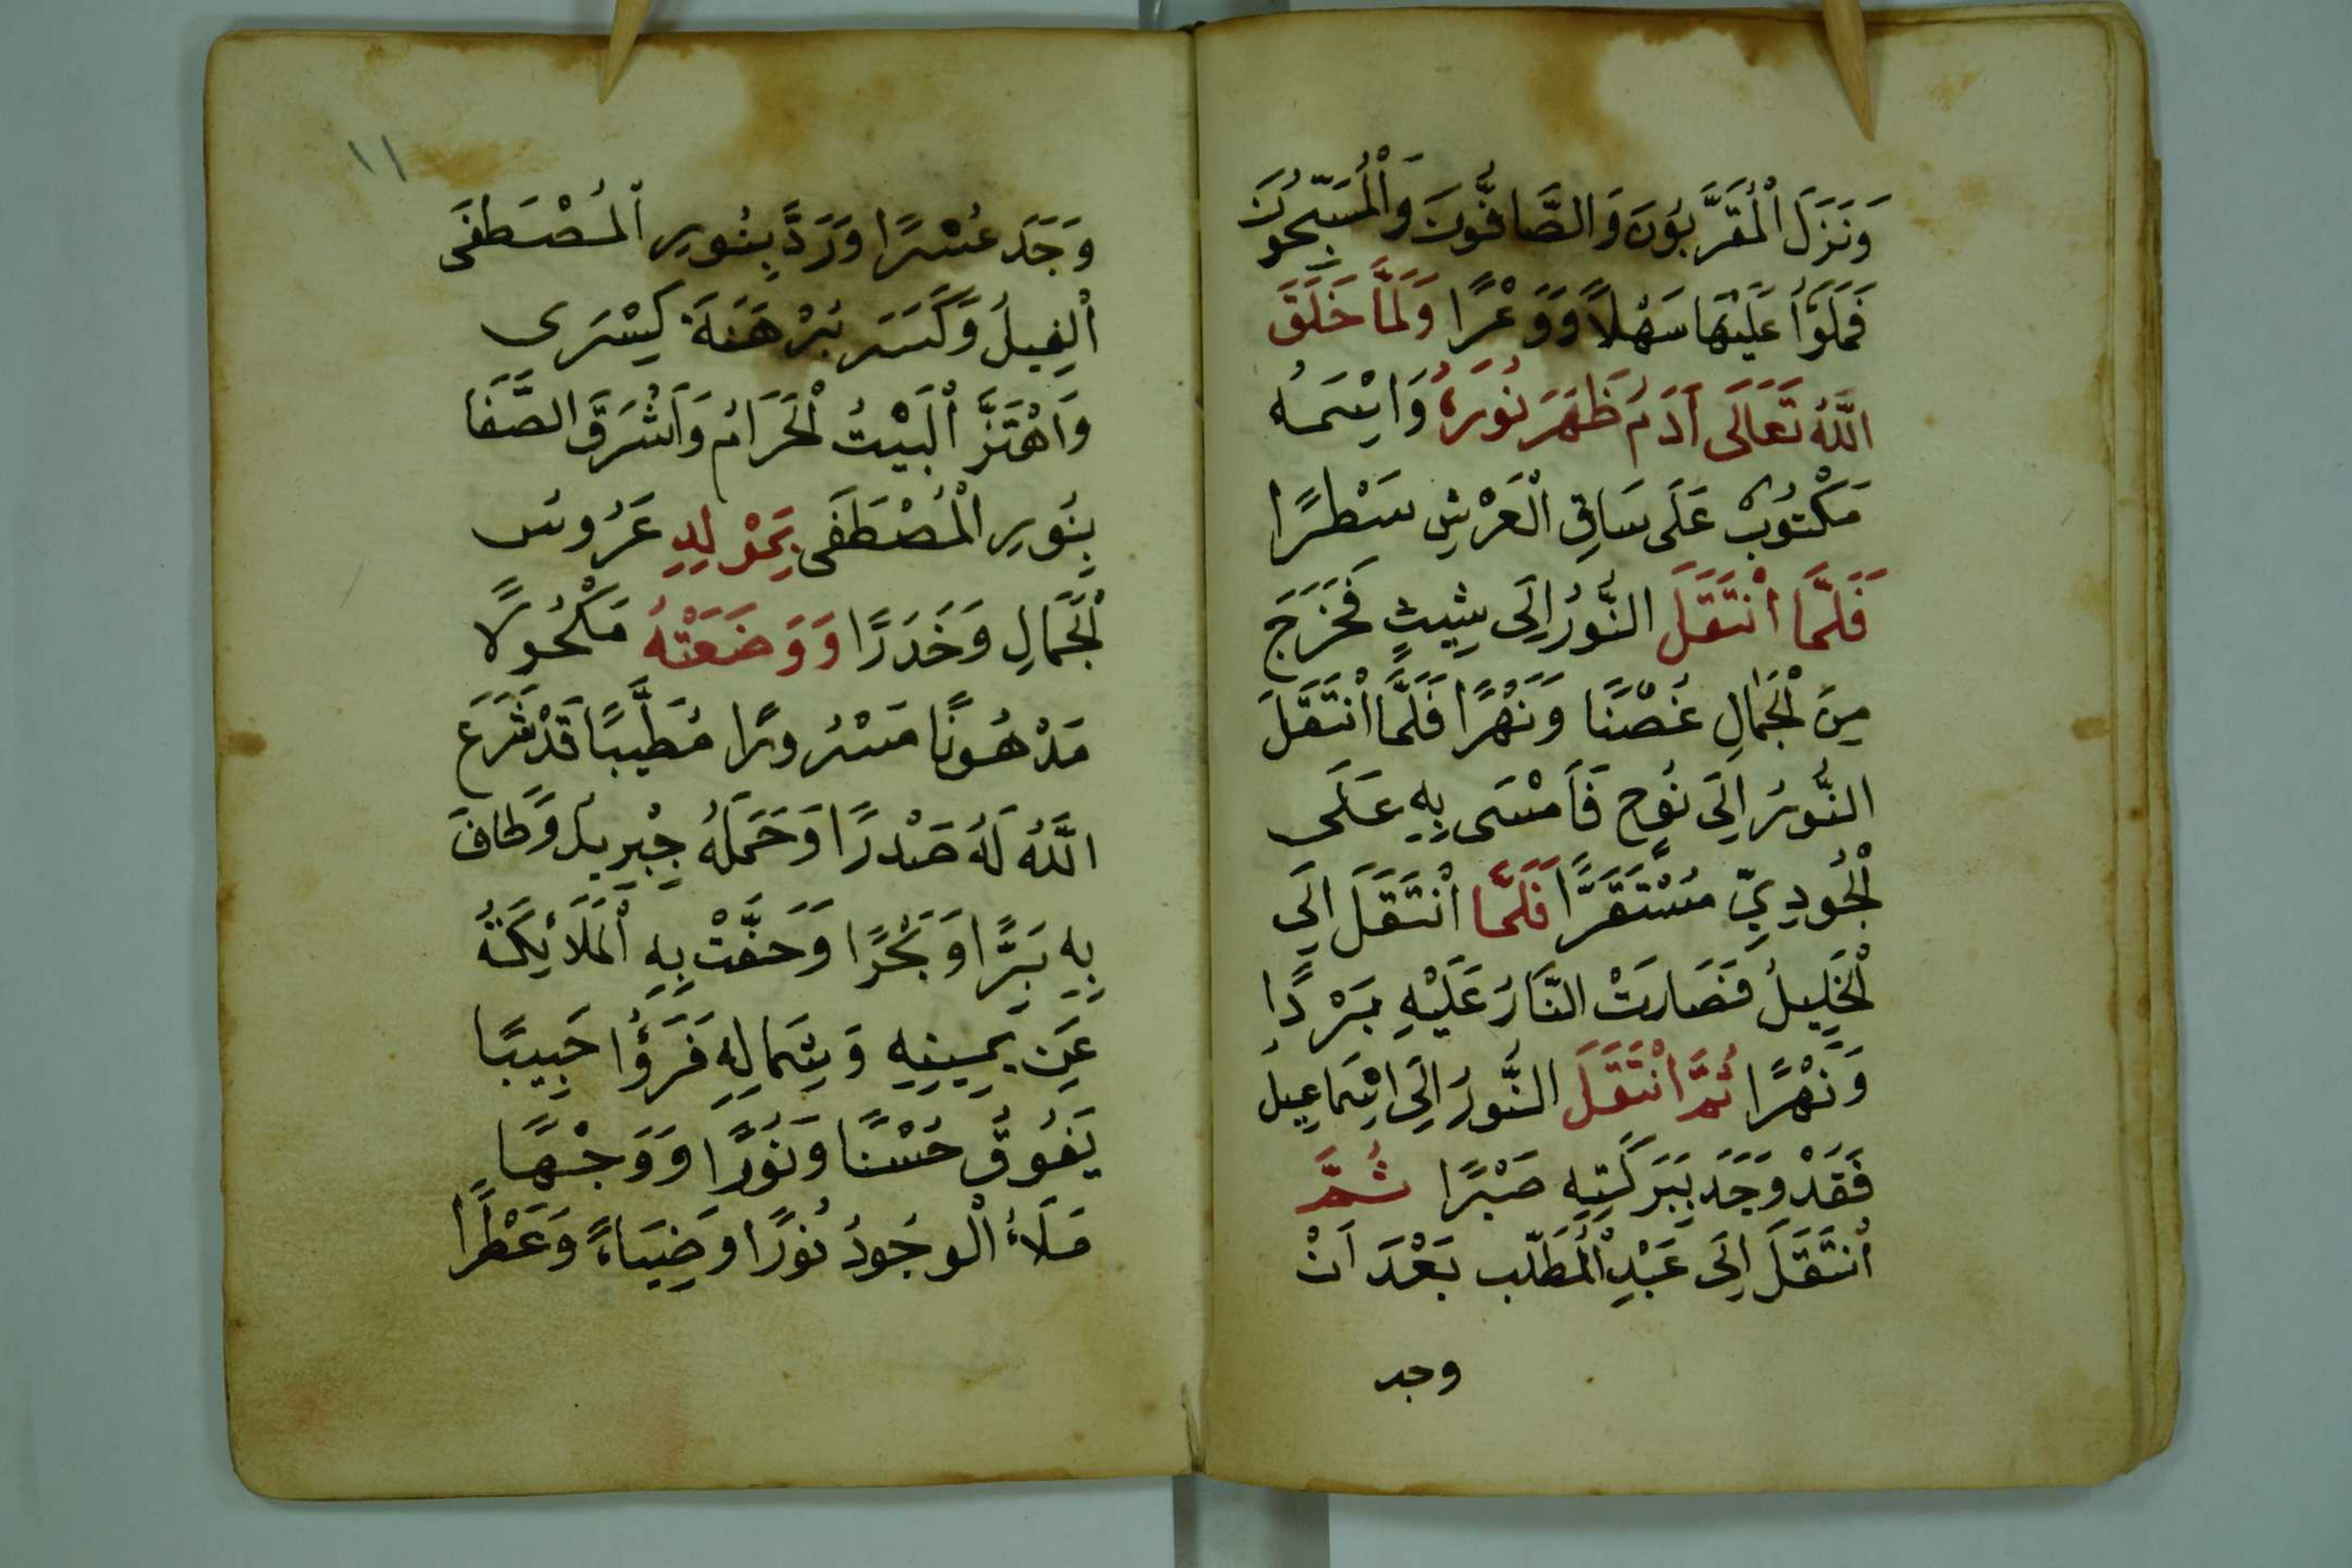 وَنَزَلَ الْمُقَرَّبُونَ وَالصَّافُّونَ وَالْمُسَبِّحُونَ
فَمَلَوُا عَلَيْهَا سَهْلاً وَوَعْرًا وَلَمَّا خَلَقَ
اللَّهُ تَعَالَى آدَمُ ظَهَرَ نُورَهُ وَاِسْمُهُ
مَكْتُوبٌ عَلَى سَاقِ الْعَرْشِ سَطْرًا
فَلَمَّا انْتَقَلَ النُّورُ اِلَى شِيثٍ فَخَرَجَ
مِنَ الْجَمَالِ غُصْنًا وَنَهْرًا فَلَمَّا انْتَقَلَ
النُّورُ اِلَى نُوحٍ فَاَمْسَى بِهِ عَلَى
الْجُودِيِّ مُسْتَقَرًّا فَلَمَّا انْتَقَلَ اِلَى
الْخَلِيلُ فَصَارَتْ النَّارُ عَلَيْهِ بَرْدًا
وَنَهْرًا ثُمَّ انْتَقَلَ النُّورُ اِلَى اِسْمَاعِيلَ
فَقَدْ وَجَدَ بِبَرَكَتِهِ صَبْرًا ثُمَّ
انْتَقَلَ اِلَى عَبْدِ الْمُطَّلِب بَعْدَ اَنْ
وجد
١١
وَجَدَ عُسْرًا وَرَدَّ بِنُورِ الْمُصْطَفَى
الْفِيلُ وَكَسَرَ بَرْهَنَةَ كِسْرَى
وَاهْتَزَّ الْبَيْتُ الْحَرَامُ وَاَشْرَقَ الصَّفَا
بِنُورِ الْمُصْطَفَى بِمَوْلِدِ عَرُوسُ
الْجَمَالِ وَخَدَرًا وَوَضَعَتْهُ مَكْحُولاً
مَدْهُونًا مَسْرُورًا مُطَيَّبًا قَدْ شَرَعَ
اللَّهُ لَهُ صَدْرًا وَحَمَلَهُ جِبْرِيلُ وَطَافَ
بِهِ بَرًّا وَبَحْرًا وَحَفَّتْ بِهِ الْمَلَائِكَةُ
عَنِ يَمِينِهِ وَشِمَالِهِ فَرَؤُا حَبِيبًا
يَفُوقُ حُسْنًا وَنُورًا وَوَجْهًا
مَلَاءُ الْوجُودُ نُورًا وَضِيَاءً وَعَطْرًا